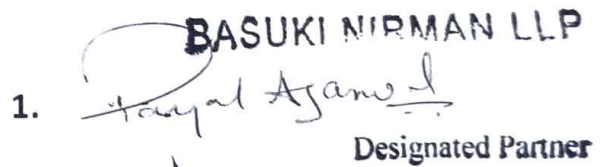 BASUKI NIRMAN LLP
1. Payal Agarwal
Designated Partner